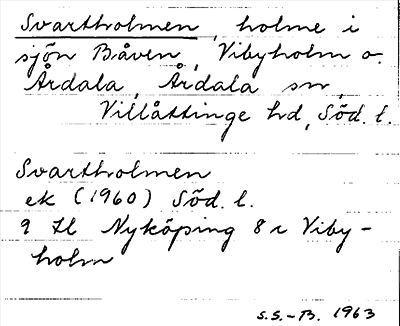 Svartholmen, holme i
sjön Båven, Vibyholm o.
Årdala, Årdala sn,
Villåttinge hd, Söd. l.
Svartholmen
ek (1960) Söd. l.
9 H Nyköping 8 c Viby-
holm
S.S.-B. 1963